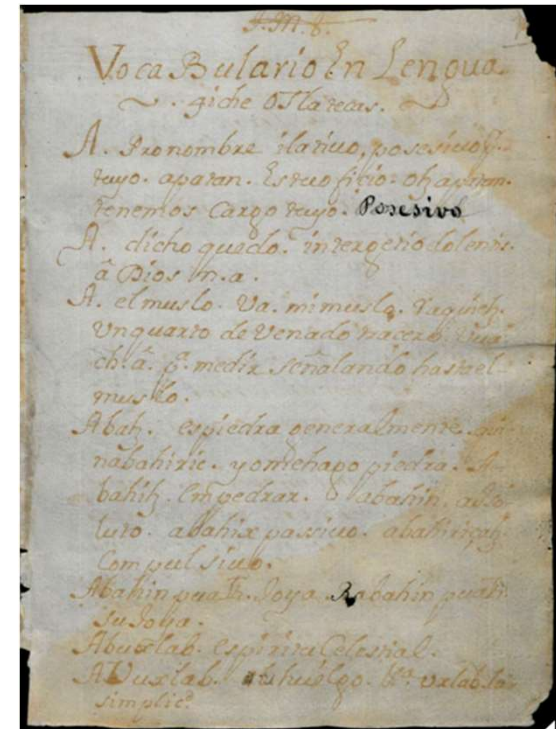 J.M.J.
VocaBulario En Lengua
qiche OTlatecas.
A. Pronombre ilatiuo, posesiuo
tuyo. apatan. Es tu ofiçio: oh apatan.
tenemos Cargo tuyo. Posesivo
A. dicho quedo. intergetio dolentis.
â Dios
A. el muslo. Va. mi muslo. Raquieh.
Un quarto de Venado tracero.
ch. â. pª. medir señalando hasta el
muslo.
Abah. es piedra generalmente.
nabahiric. yo me hago piedra. A
bahih. Empedrar. abahin.
luto. abahix passiuo.
Compulsiuo.
Abahin puach. Joya. Rabahin puach
su Joya.
Abuxlab. espiritu Celestial.
AVuxlab. huelgo. uxlab
simpliçe